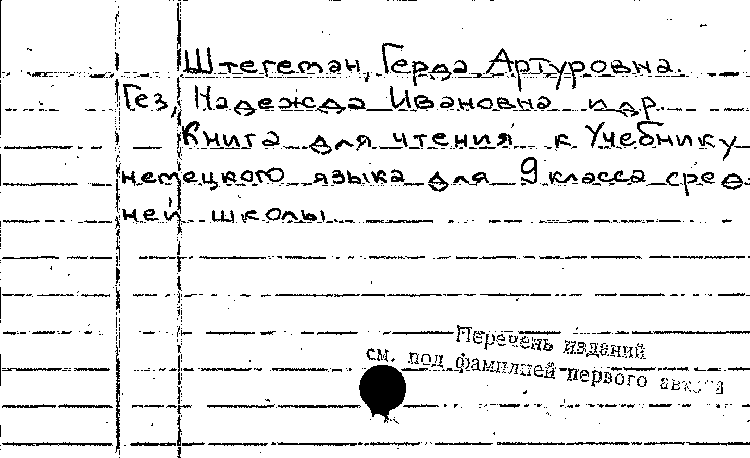 Штегеман, Герда Артуровна.
Гез, Надежда Ивановна и др.
Книга для чтения к Учебнику
немецкого языка для 9 класса сред-
ней школы.
Перечень изданий
см. под фамилией первого автора